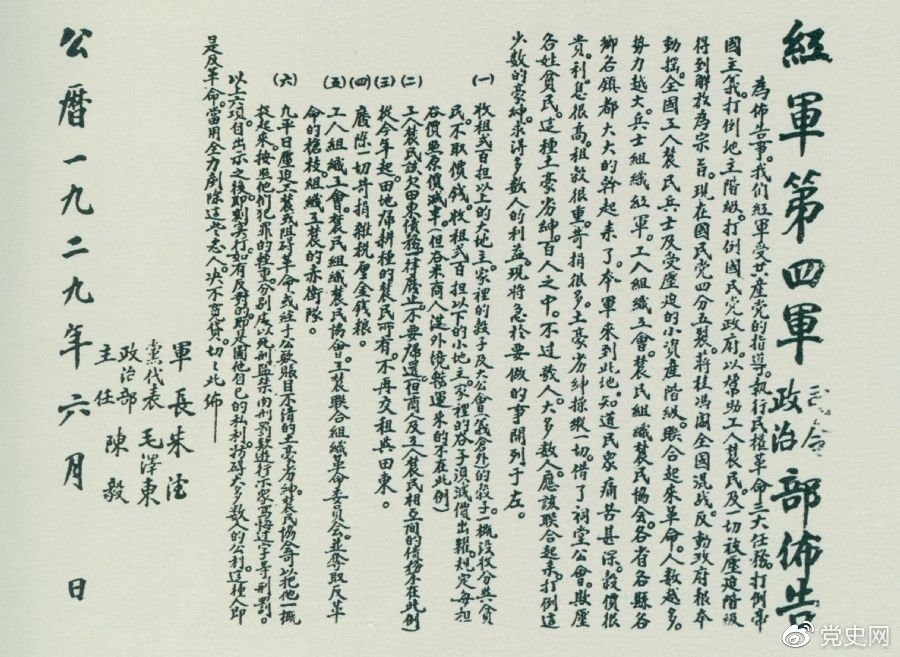 紅軍第四軍司令政治部佈告
為佈告事。我們紅軍受共產党的指導。執行民權革命三大任務。打倒帝
國主義。打倒地主階級。打倒國民党政府。以幫助工人農民及一切被壓迫階級
得到解放為宗旨。現在國民党四分五裂。蔣桂馮閻全國混战。反動政府根本
動摇。全國工人農民兵士及受壓迫的小資產階級。聯合起來革命。人数越多。
勢力越大。兵士組織紅軍。工人組織工會。農民組織農民協會。各省各縣各
鄉各鎮都大大的幹起来了。本軍来到此地。知道民衆痛苦甚深。穀價很
貴。利息很高。租穀很重。苛捐很多。土豪劣紳操縱一切。借了祠堂公會。欺壓
各姓貧民。這種土豪劣紳。百人之中。不过数人。大多数人。應該联合起来。打倒這
少数的豪紳。求得多数人的利益。現将急於要做的事開列于左。
(一) 收租弍百担以上的大地主。家裡的穀子及大公會(義倉外)的穀子一概没收分與貧
民。不取價钱。收租弍百担以下的小地主。家裡的谷子須減價出糶。規定每担
谷價照原價減半。(但谷米商人從外境輸運来的不在此例)
(二) 工人農民該欠田東債務。一律廢止。不要歸還。(但商人及工人農民相互間的債務不在此例)
(三) 從今年起。田地歸耕種的農民所有。不再交租與田東。
(四) 廢除一切苛捐雜税厘金錢粮。
(五) 工人組織工會。農民組織農民協會。工農联合組織革命委員会。並奪取反革
命的槍枝組織工農的赤衛隊。
(六) 凡平日壓迫工農或阻碍革命。或經手公款賬目不清的土豪劣紳。農民協會可以把他一概
捉起来。按照他们犯罪的輕重。分别處以死刑監禁肉刑罰款遊行示家寫悔过字等刑罰。
以上六項自出示之後。即刻实行。如有反对的。即是圖他自己的私利。妨碍大多数人的公利。這種人即
是反革命。當用全力剷除這些惡人。决不寬貸。切切此佈
軍長 朱德
黨代表 毛澤東
政治部主任 陳毅
公曆一九二九年六月 日
党史网